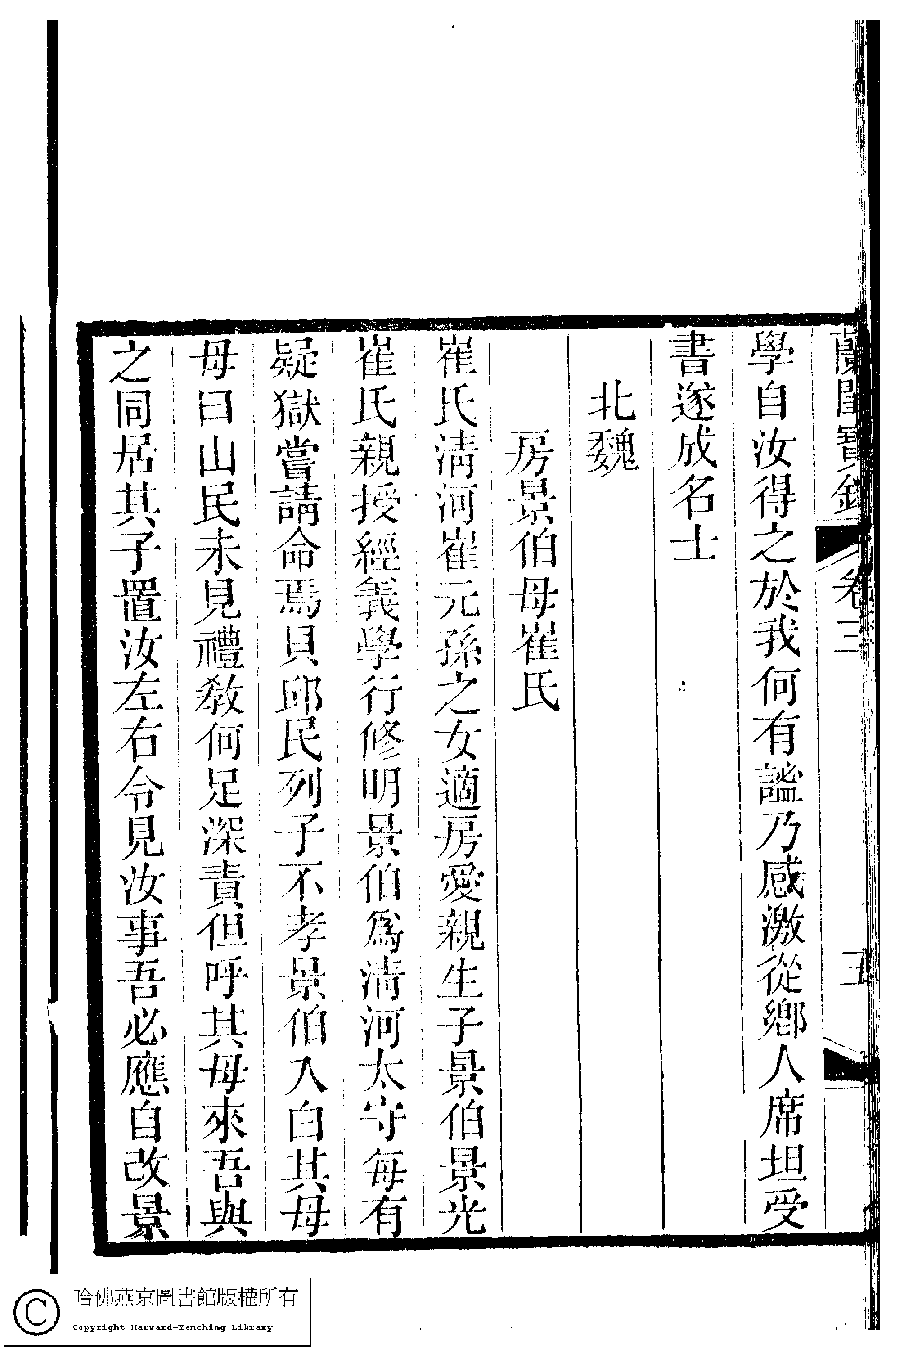 蘭閨寶錄 卷三 五
學自汝得之於我何有謐乃感激從鄉人席坦受
書遂成名士
北魏
房景伯母崔氏
崔氏淸河崔元孫之女適房愛親生子景伯景光
崔氏親授經義學行修明景伯爲淸河太守每有
疑獄嘗請命焉貝邱民列子不孝景伯入白其母
母曰山民未見禮敎何足深責但呼其母來吾與
之同居其子置汝左右令見汝事吾必應自改景
哈佛燕京圖書館版權所有
Copyright Harvard-Yenching Library